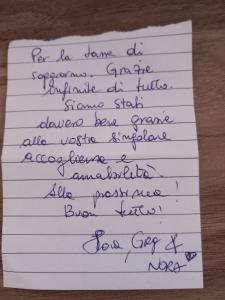 Per la tassa di
soggiorno. Grazie
infinite di tutto.
Siamo stati
davvero bene grazie
alla vostra singolare
accoglienza e
amabilità.
Alla prossima!
Buon tutto!
Greg &
NORA